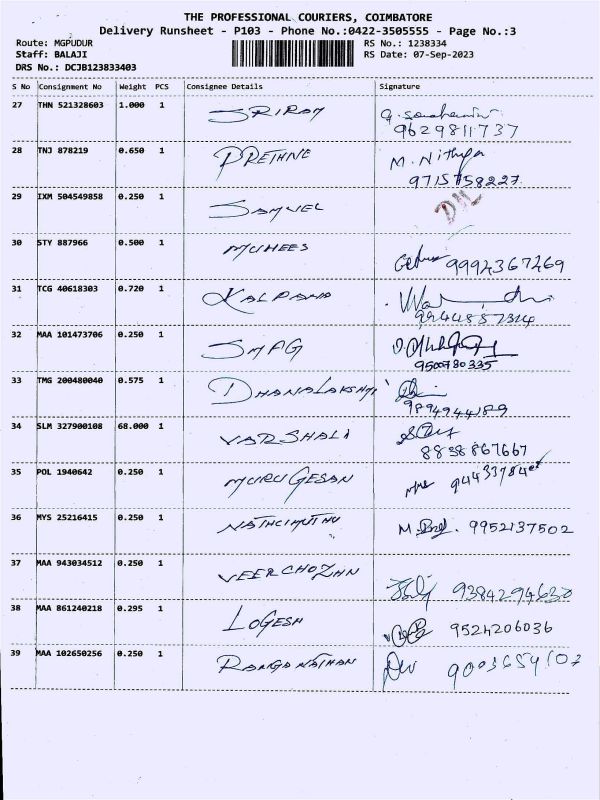 THE PROFESSIONAL COURIERS, COIMBATORE
Delivery Runsheet - P103 - Phone No.:0422-3505555 - Page No.:3
Route: MGPUDUR RS No.: 1238334
Staff: BALAJI RS Date: 07-Sep-2023
DRS No.: DCJB123833403
S No Consignment No Weight PCS Consignee Details Signature
27 THN 521328603 1.000 1 SRIRAM
9629811737
28 TNJ 878219 0.650 1 PRETHNE M. Nithya
9715758227.
29 IXM 504549858 0.250 1 SAMUEL
30 STY 887966 0.500 1 MUHEES 9994367269
31 TCG 40618303 0.720 1 KALPANA
9944857324
32 MAA 101473706 0.250 1 SMPG
9500780335
33 TMG 200480040 0.575 1 DHANALAKSHMI
9894944189
34 SLM 327900108 68.000 1 VARSHALI
8838867667
35 POL 1940642 0.250 1 MURUGESAN
36 MYS 25216415 0.250 1 NATHCIMUTHU 9952137502
37 MAA 943034512 0.250 1 VEERCHOZHAN
9384294630
38 MAA 861240218 0.295 1 LOGESH 9524206036
39 MAA 102650256 0.250 1 RANGANATHAN 9003654107